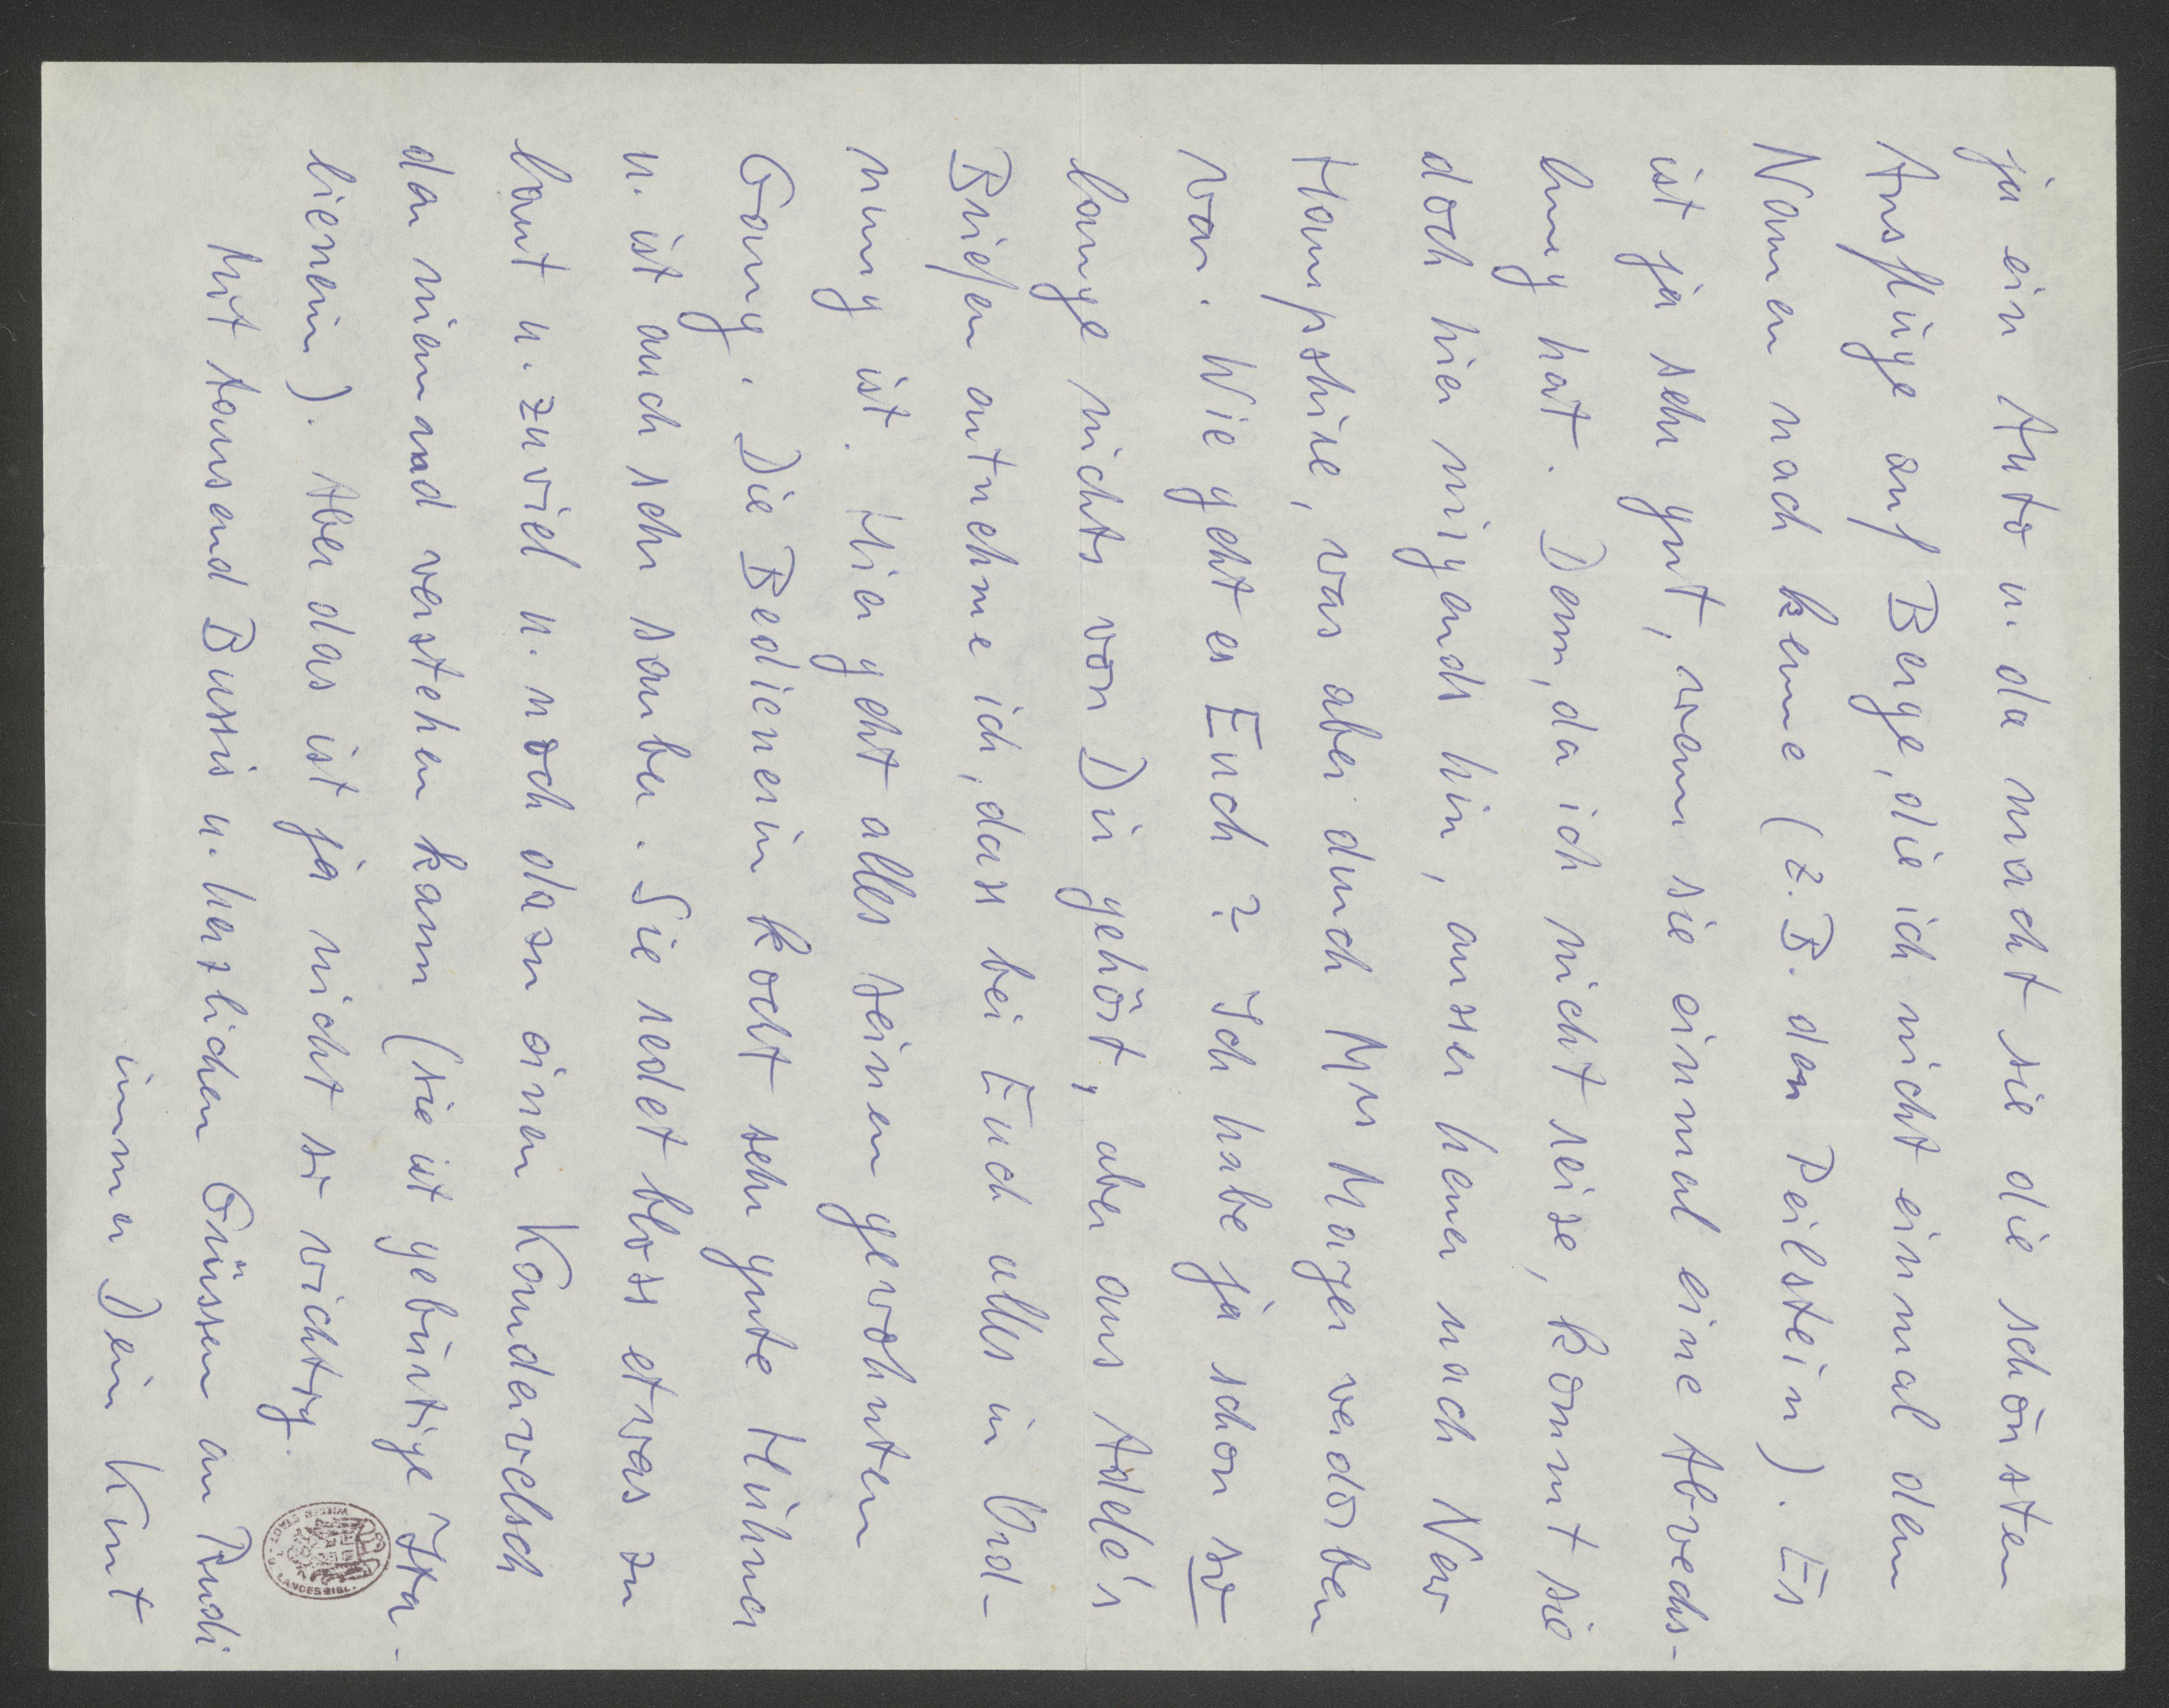 ja ein Auto u. da macht sie die schönsten
Ausflüge auf Berge, die ich nicht einmal dem
Namen nach kenne (z. B. den Peilstein). Es
ist ja sehr gut, wenn sie einmal eine Abwechs-
lung hat. Denn, da ich nicht reise, kommt sie
doch hier nirgends hin, ausser heuer nach New
Hampshire, was aber durch Mrs Mayer verdorben
war. Wie geht es Euch? Ich habe ja schon so
lange nichts von Dir gehört, aber aus Adele's
Briefen entnehme ich, dass bei Euch alles in Ord-
nung ist. Hier geht alles seinen gewohnten
Gang. Die Bedienerin kocht sehr gute Hühner
u. ist auch sehr sauber. Sie redet bloss etwas zu
laut u. zuviel u. noch dazu einen Kauderwelsch
den niemand verstehen kann (sie ist gebürtige Ita-
lienerin). Aber das ist ja nicht so wichtig.
Mit tausend Bussis u. herzlichen Grüssen an Rudi
immer Dein Kurt
WIENER STADT- U. LANDESBIBL.